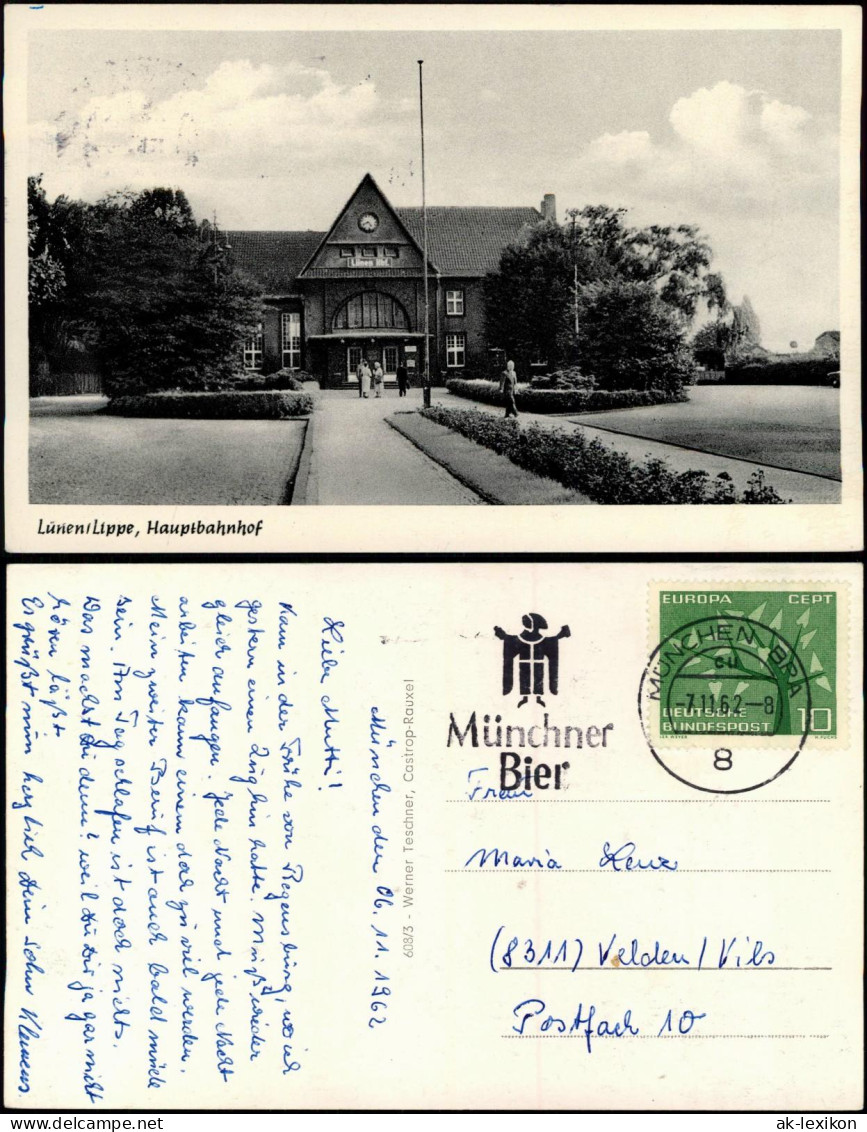 Lünen Hbf.
Lünen/Lippe, Hauptbahnhof
München den 06. 11. 1962
Liebe Mutti!
Kam in der Frühe von Regensburg, wo ich
gestern einen Zug hin hatte. Muß wieder
gleich anfangen. Jede Nacht und jede Nacht
arbeiten kann einem doch zu viel werden.
Mein zweiter Beruf ist auch bald müde
sein. Am Tag schlafen ist doch nichts.
Was machst Du denn? weil Du Dir ja gar nicht
hören läßt.
Es grüßt nun herzlich Dein Sohn Klemens.
608/3 - Werner Teschner, Castrop-Rauxel
Münchner
Bier
EUROPA CEPT
DEUTSCHE
BUNDESPOST
10
MÜNCHEN BPA
-7.11.62-8
8
Frau
Maria
(8311) Velden/Vils
Postfach 10
ak-lexikon